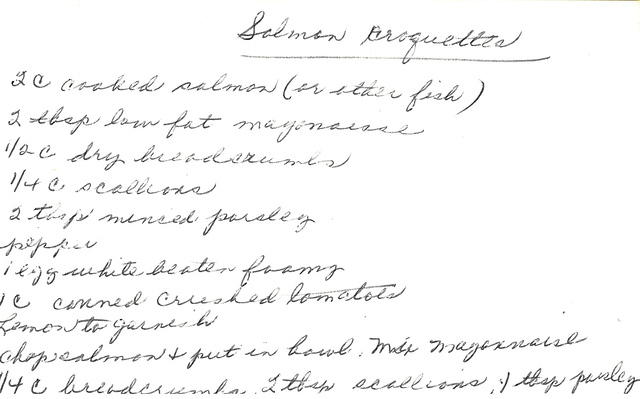 Salmon Croquettes
2 c cooked salmon (or other fish)
2 tbsp low fat mayonaisse
1/2 c dry breadcrumbs
1/4 c scallions
2 tbsp minced parsley
pepper
1 egg white beaten foamy
1 c canned crushed tomatoes
Lemon to garnish
Chop salmon & put in bowl. Mix Mayonnaise
1/4 c breadcrumbs, 2 tbsp scallions, 1 tbsp parsley